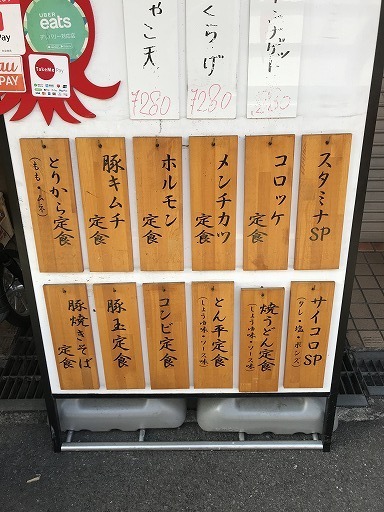 UBER
eats
デリバリー対応店
Pay
au
PAY
TakeMe Pay
やこ天
¥280
くらげ
¥280
280
スタミナSP
コロッケ定食
メンチカツ定食
ホルモン定食
豚キムチ定食
とりから定食
(もも・ムネ)
サイコロSP
(タレ・塩・ポンズ)
焼うどん定食
(しょうゆ味・ソース味)
とん平定食
(しょうゆ味・ソース味)
コンビ定食
豚玉定食
豚焼きそば定食